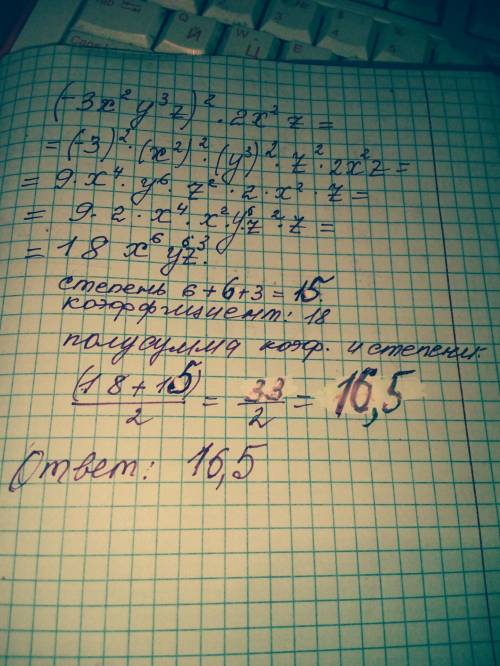 Й
Ц
(-3x² y³ z)² · 2x² z =
= (-3)² · (x²)² · (y³)² · z² · 2x² z =
= 9 · x⁴ · y⁶ · z² · 2 · x² · z =
= 9 · 2 · x⁴ · x² · y⁶ · z² · z =
= 18 x⁶ y⁶ z³.
степень 6 + 6 + 3 = 15.
коэффициент: 18
полусумма коэф. и степени:
(18 + 15)/2 = 33/2 = 16,5
Ответ: 16,5